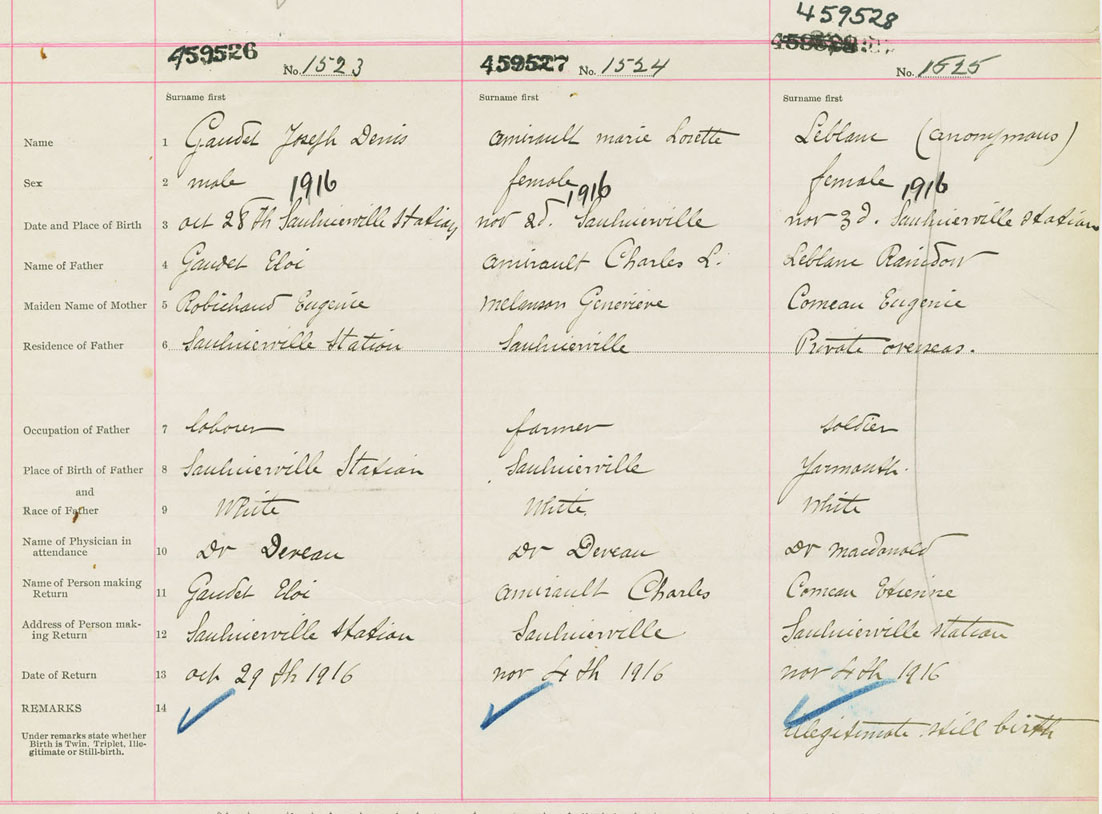 459528
459526 459527
No. 1523 No. 1524 No. 1525
Surname first Surname first Surname first
Name 1 Gaudet Joseph Denis amirault marie Lorette Leblanc (anonymous)
Sex 2 male female female
1916 1916 1916
Date and Place of Birth 3 oct 28th Saulnierville Station nov 2d. Saulnierville nov 3d. Saulnierville station
Name of Father 4 Gaudet Eloi amirault Charles L. Leblanc
Maiden Name of Mother 5 Robichaud Eugenie melanson Genevieve Comeau Eugenie
Residence of Father 6 Saulnierville Station Saulnierville Private overseas.
Occupation of Father 7 laborer farmer soldier
Place of Birth of Father 8 Saulnierville Station Saulnierville Yarmouth.
and
Race of Father 9 White White. White
Name of Physician in
attendance 10 Dr Deveau Dr Deveau Dr macdonald
Name of Person making
Return 11 Gaudet Eloi amirault Charles Comeau Etienne
Address of Person mak-
ing Return 12 Saulnierville station Saulnierville Saulnierville station
Date of Return 13 oct 29th 1916 nov 4th 1916 nov 4th 1916
REMARKS 14
Under remarks state whether
Birth is Twin, Triplet, Ille-
gitimate or Still-birth.
illegitimate still birth